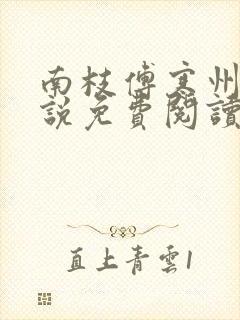 南枝傅寒州
説免費閱讀
直上青雲1